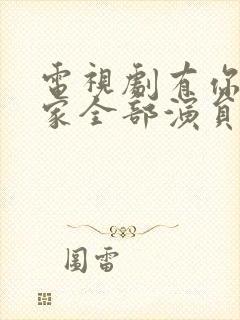 電視劇有你
家全部演員
圖雷